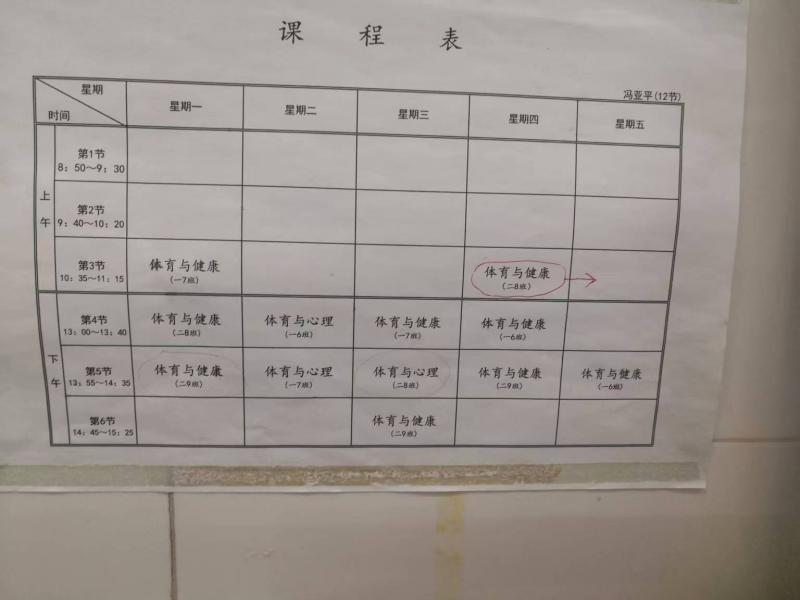 课 程 表
冯亚平(12节)
星期
时间
星期一
星期二
星期三
星期四
星期五
上午
第1节
8:50～9:30
第2节
9:40～10:20
第3节
10:35～11:15
体育与健康
(一7班)
体育与健康
(二8班)
下午
第4节
13:00～13:40
体育与健康
(二8班)
体育与心理
(一6班)
体育与健康
(一7班)
体育与健康
(一6班)
第5节
13:55～14:35
体育与健康
(二9班)
体育与心理
(一7班)
体育与心理
(二8班)
体育与健康
(二9班)
体育与健康
(一6班)
第6节
14:45～15:25
体育与健康
(二9班)